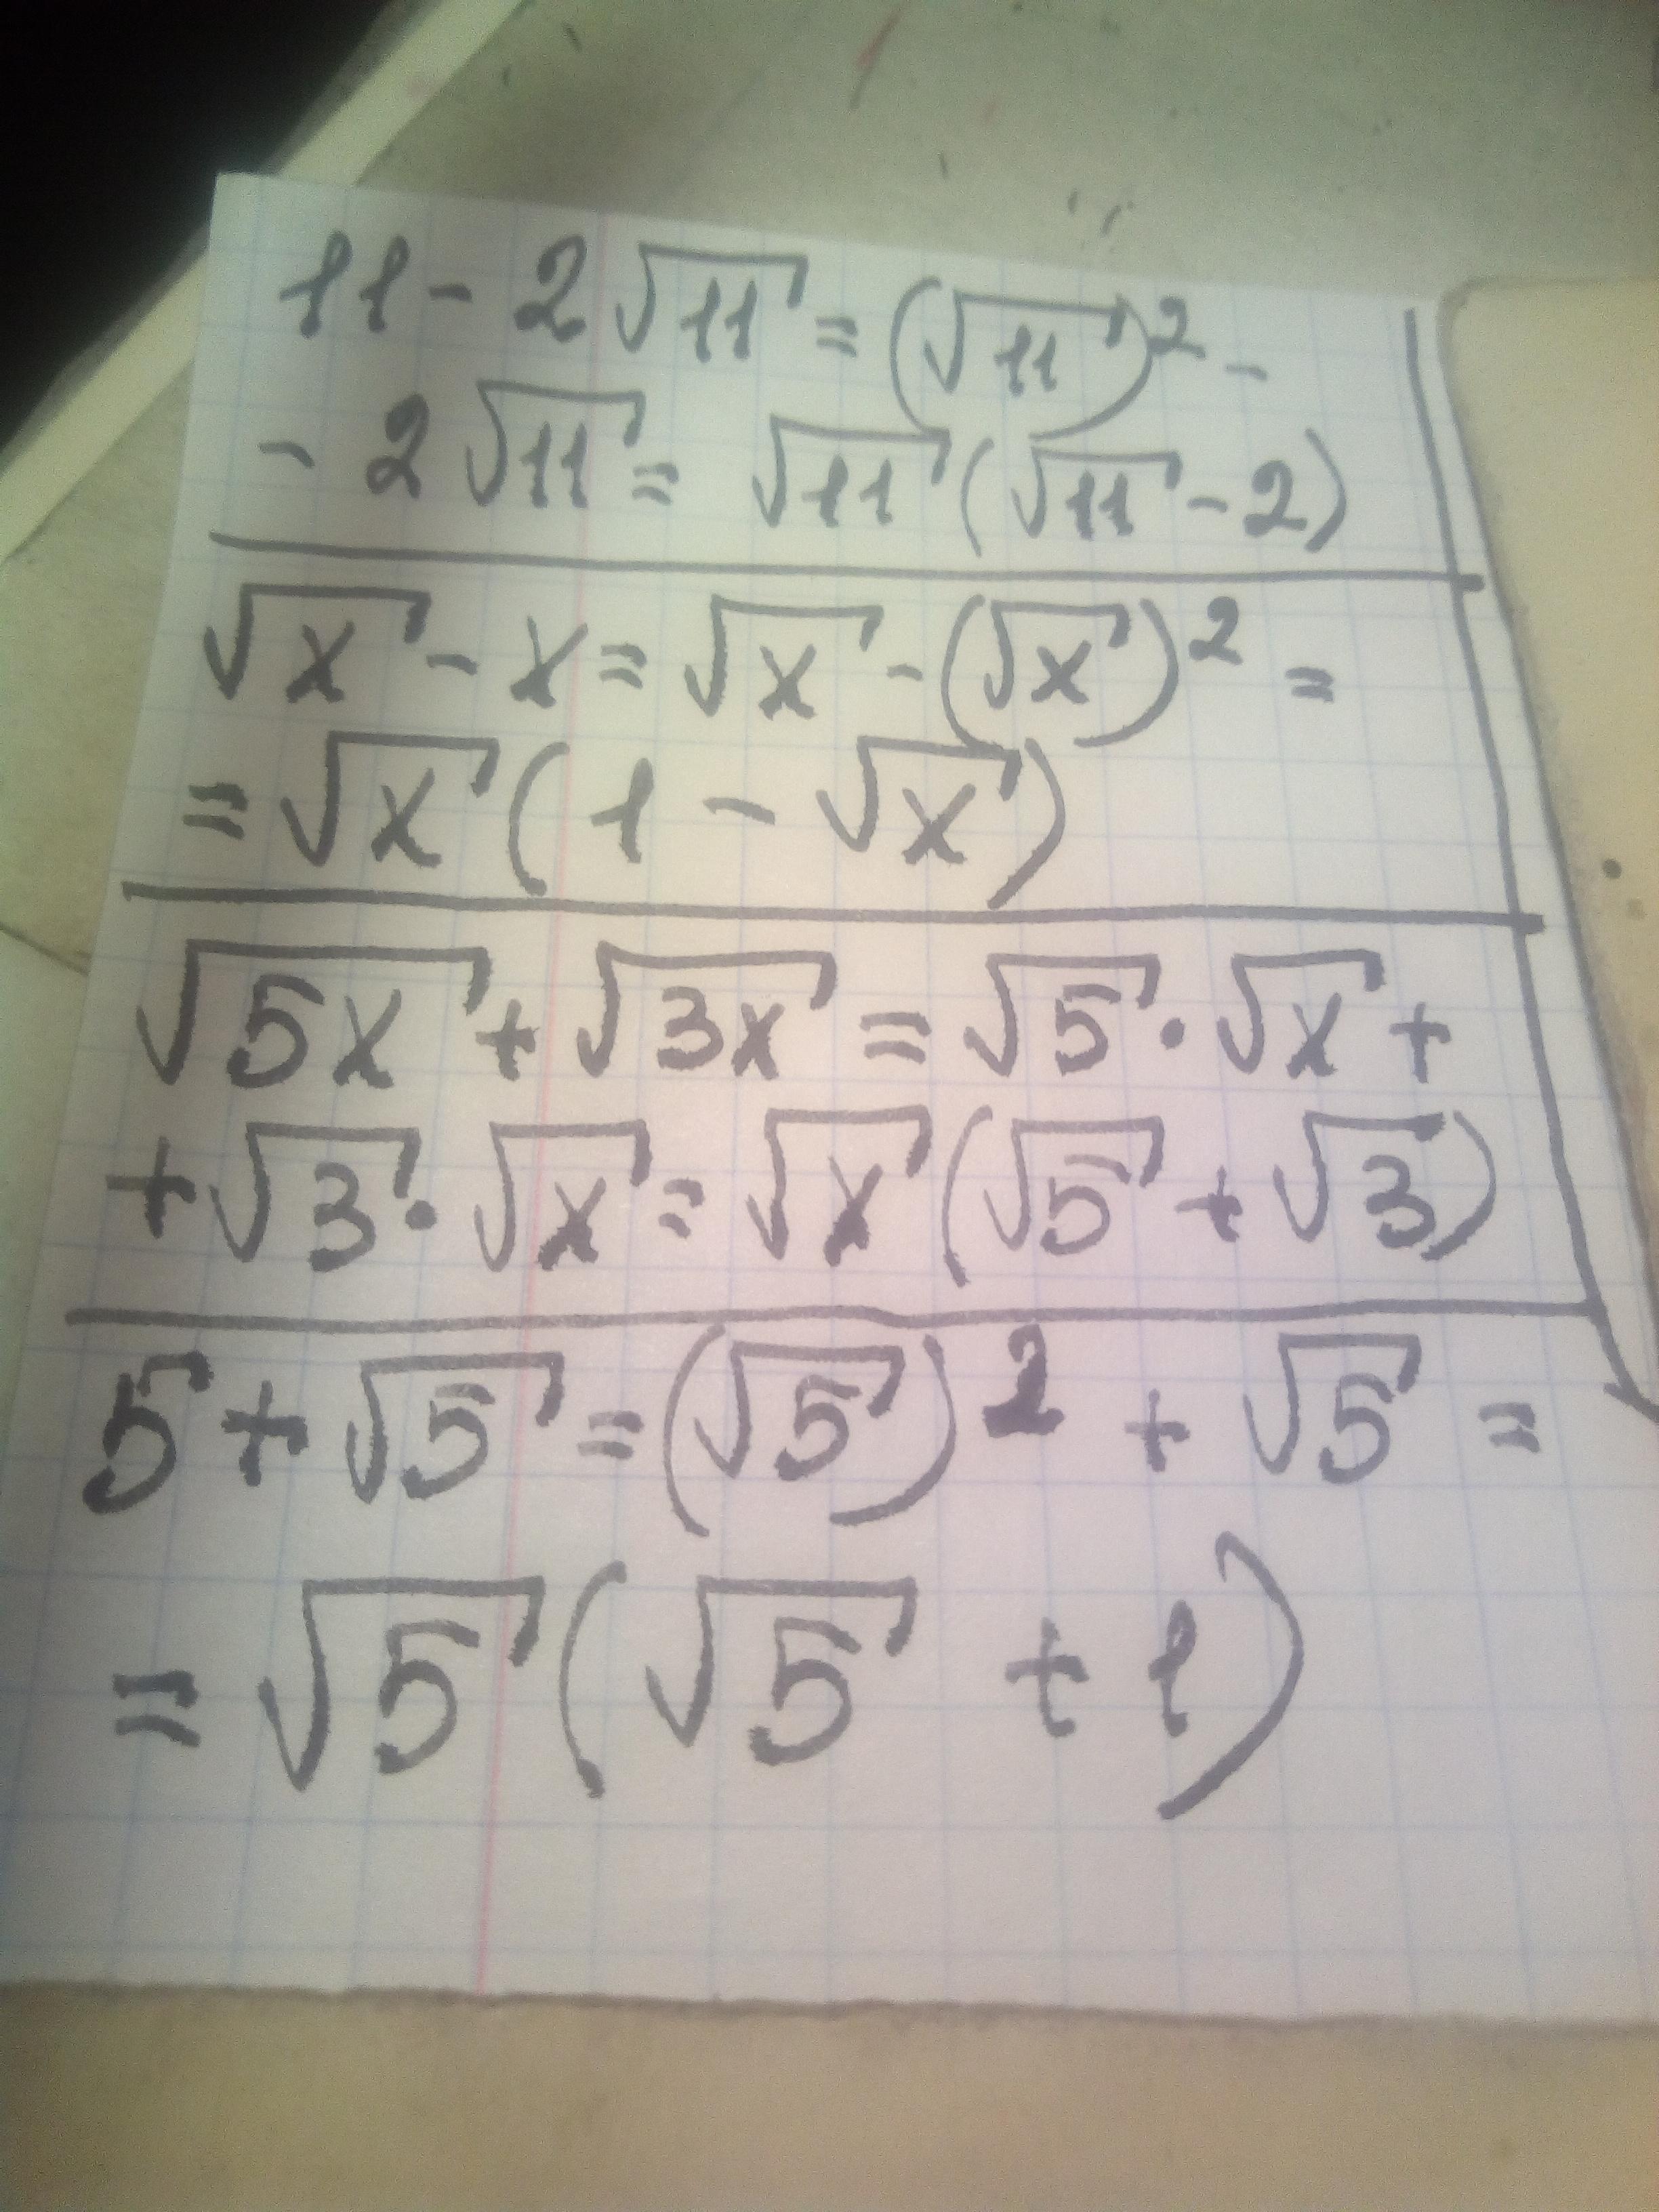 11 - 2√11 = (√11)² -
- 2√11 = √11(√11 - 2)
√x - x = √x - (√x)² =
= √x(1 - √x)
√5x + √3x = √5 · √x +
+ √3 · √x = √x(√5 + √3)
5 + √5 = (√5)² + √5 =
= √5(√5 + 1)